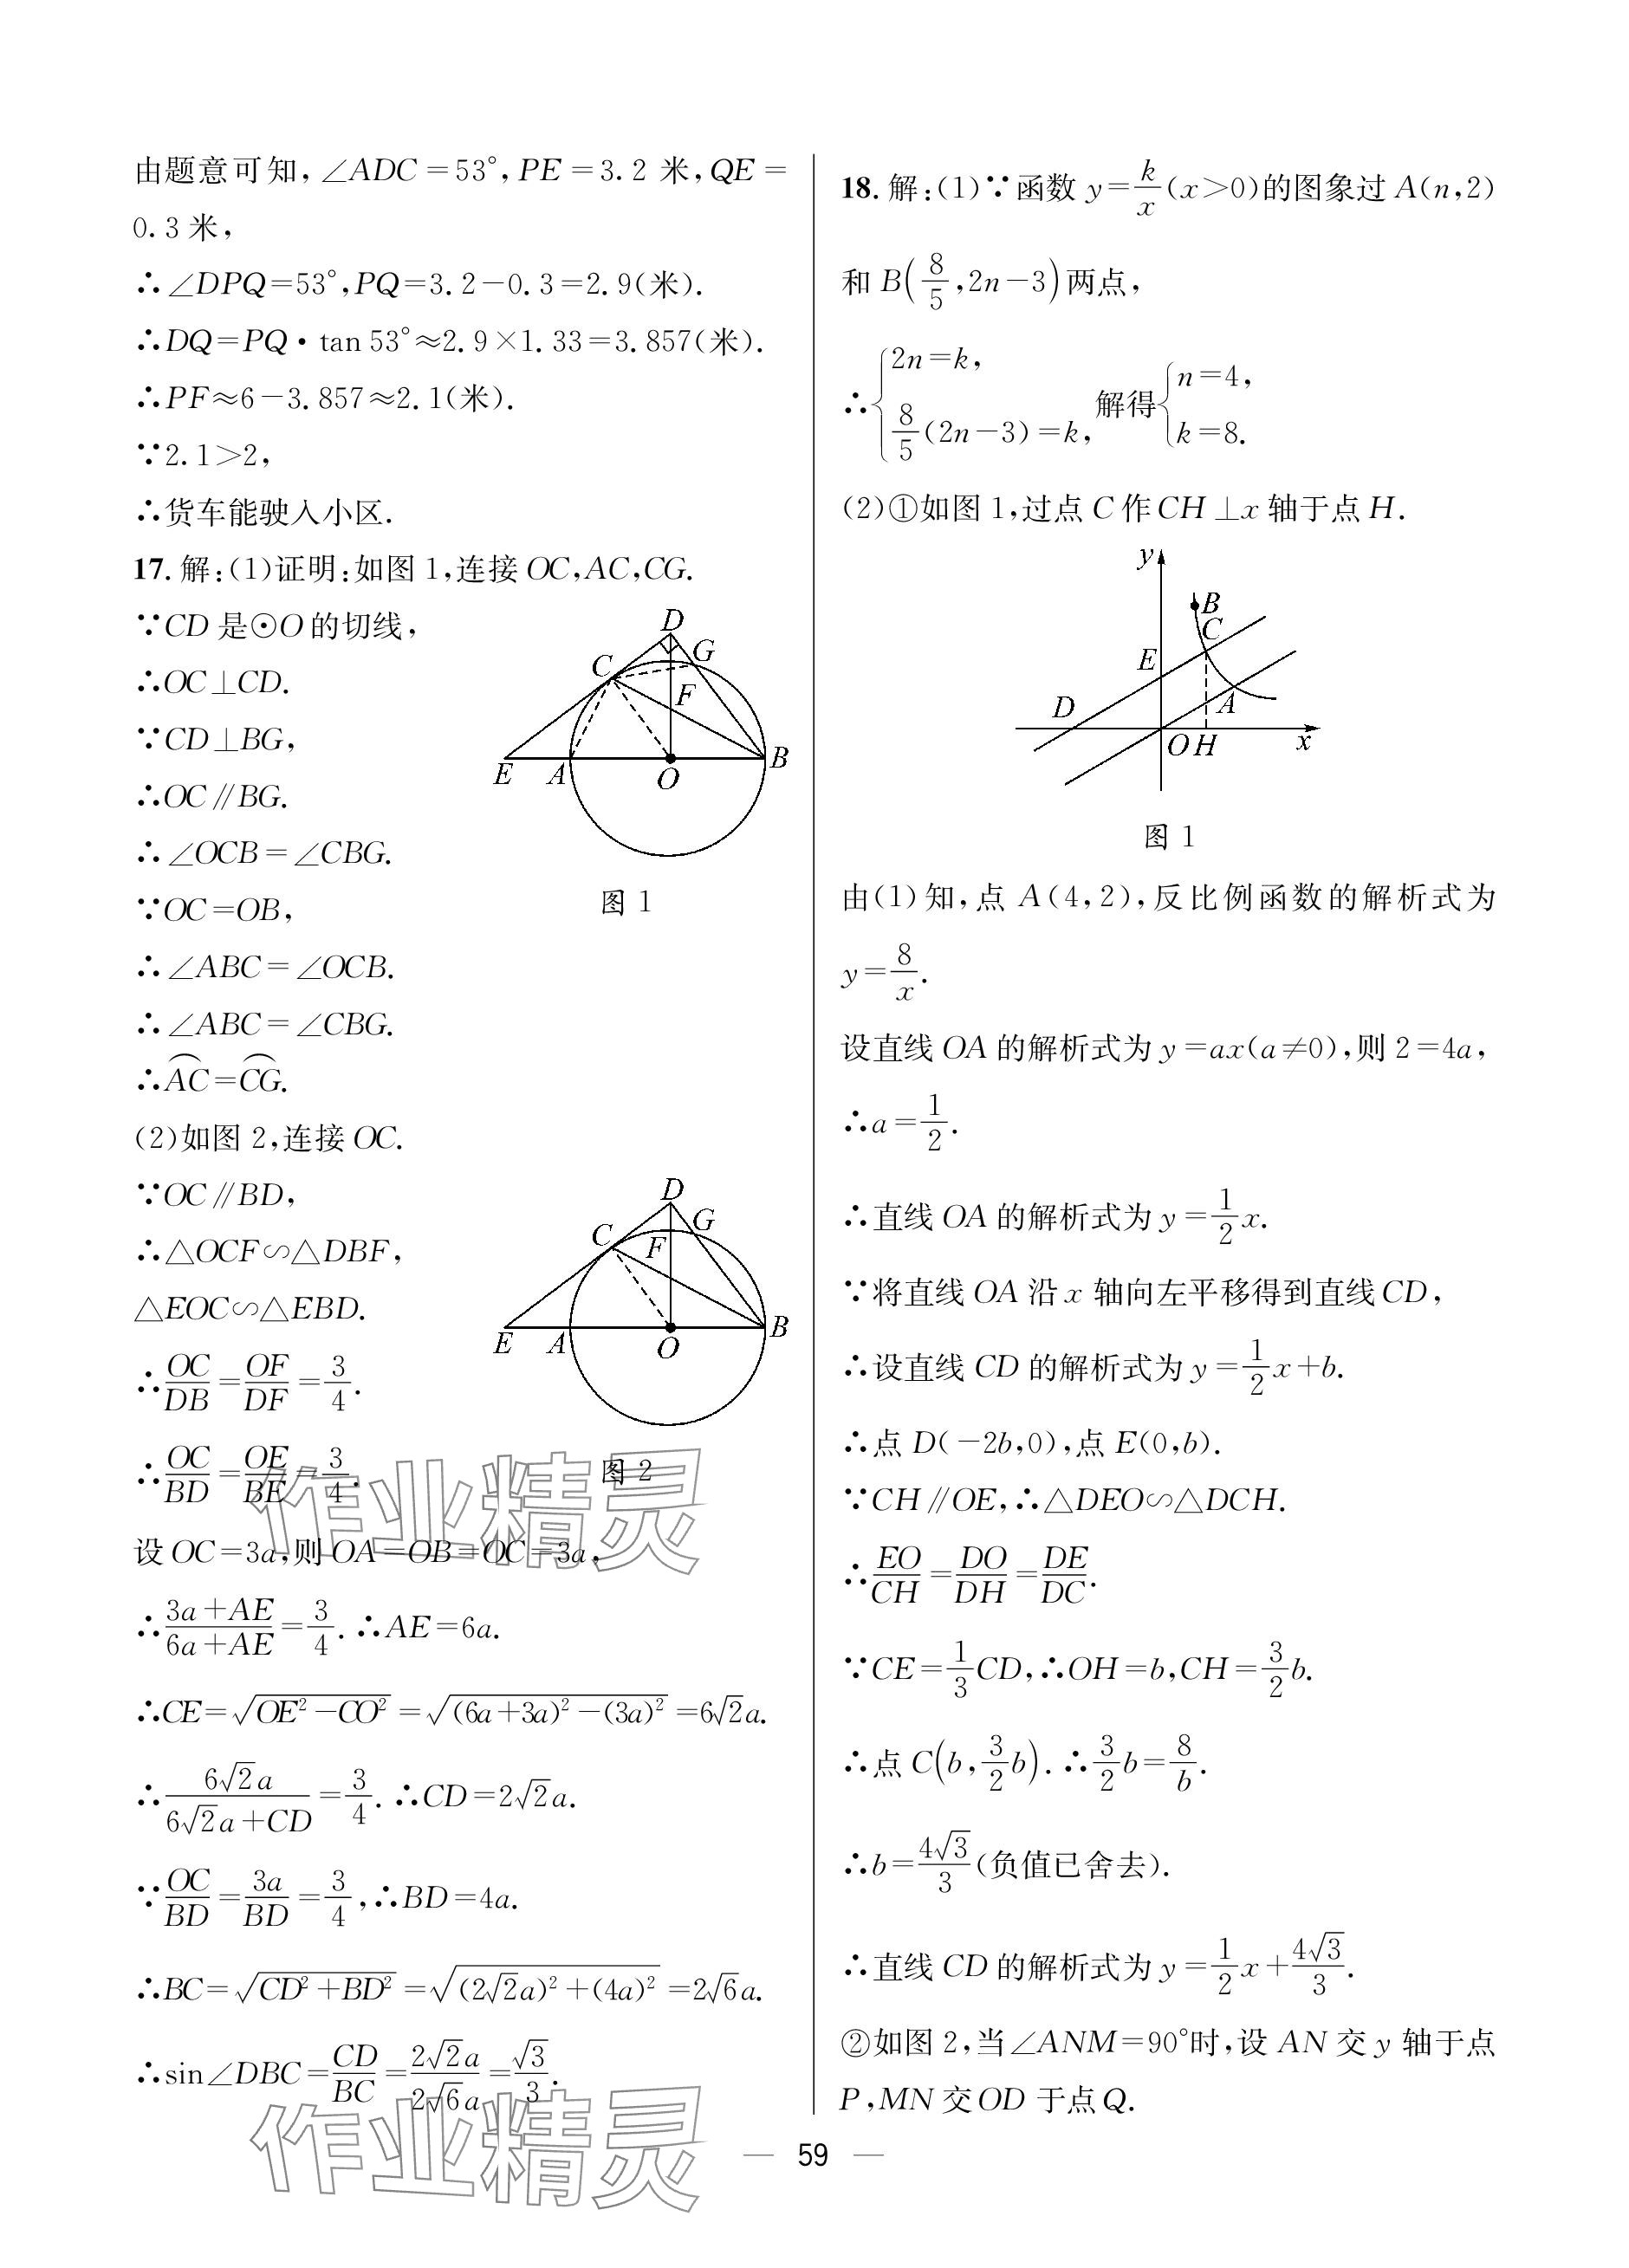 由题意可知,∠ADC=53°,PE=3.2 米,QE=
0.3 米,
∴∠DPQ=53°,PQ=3.2-0.3=2.9(米).
∴DQ=PQ·tan 53°≈2.9×1.33=3.857(米).
∴PF≈6-3.857≈2.1(米).
∵2.1>2,
∴货车能驶入小区.
17. 解:(1)证明:如图 1,连接 OC,AC,CG.
∵CD 是⊙O 的切线,
∴OC⊥CD.
∵CD⊥BG,
∴OC∥BG.
∴∠OCB=∠CBG.
∵OC=OB,
∴∠ABC=∠OCB.
∴∠ABC=∠CBG.
∴\overset{\frown}{AC}=\overset{\frown}{CG}.
D
C
G
F
E
A
O
B
图 1
(2)如图 2,连接 OC.
∵OC∥BD,
∴△OCF∽△DBF,
△EOC∽△EBD.
∴\frac{OC}{DB}=\frac{OF}{DF}=\frac{3}{4}.
∴\frac{OC}{BD}=\frac{OE}{BE}=\frac{3}{4}.
D
C
G
F
E
A
O
B
图 2
设 OC=3a,则 OA=OB=OC=3a,
∴\frac{3a+AE}{6a+AE}=\frac{3}{4}. ∴AE=6a.
∴CE=\sqrt{OE²-CO²}=\sqrt{(6a+3a)²-(3a)²}=6\sqrt{2}a.
∴\frac{6\sqrt{2}a}{6\sqrt{2}a+CD}=\frac{3}{4}. ∴CD=2\sqrt{2}a.
∵\frac{OC}{BD}=\frac{3a}{BD}=\frac{3}{4},∴BD=4a.
∴BC=\sqrt{CD²+BD²}=\sqrt{(2\sqrt{2}a)²+(4a)²}=2\sqrt{6}a.
∴sin∠DBC=\frac{CD}{BC}=\frac{2\sqrt{2}a}{2\sqrt{6}a}=\frac{\sqrt{3}}{3}.
18. 解:(1)∵函数 y=\frac{k}{x}(x>0)的图象过 A(n,2)
和 B(\frac{8}{5},2n-3)两点,
∴{2n=k, \frac{8}{5}(2n-3)=k, 解得{n=4, k=8.
(2)①如图 1,过点 C 作 CH⊥x 轴于点 H.
y
B
C
E
D
A
O H
x
图 1
由(1)知,点 A(4,2),反比例函数的解析式为
y=\frac{8}{x}.
设直线 OA 的解析式为 y=ax(a≠0),则 2=4a,
∴a=\frac{1}{2}.
∴直线 OA 的解析式为 y=\frac{1}{2}x.
∵将直线 OA 沿 x 轴向左平移得到直线 CD,
∴设直线 CD 的解析式为 y=\frac{1}{2}x+b.
∴点 D(-2b,0),点 E(0,b).
∵CH∥OE,∴△DEO∽△DCH.
∴\frac{EO}{CH}=\frac{DO}{DH}=\frac{DE}{DC}.
∵CE=\frac{1}{3}CD,∴OH=b,CH=\frac{3}{2}b.
∴点 C(b,\frac{3}{2}b). ∴\frac{3}{2}b=\frac{8}{b}.
∴b=\frac{4\sqrt{3}}{3}(负值已舍去).
∴直线 CD 的解析式为 y=\frac{1}{2}x+\frac{4\sqrt{3}}{3}.
②如图 2,当∠ANM=90°时,设 AN 交 y 轴于点
P,MN 交 OD 于点 Q.
作业精灵
作业精灵
— 59 —